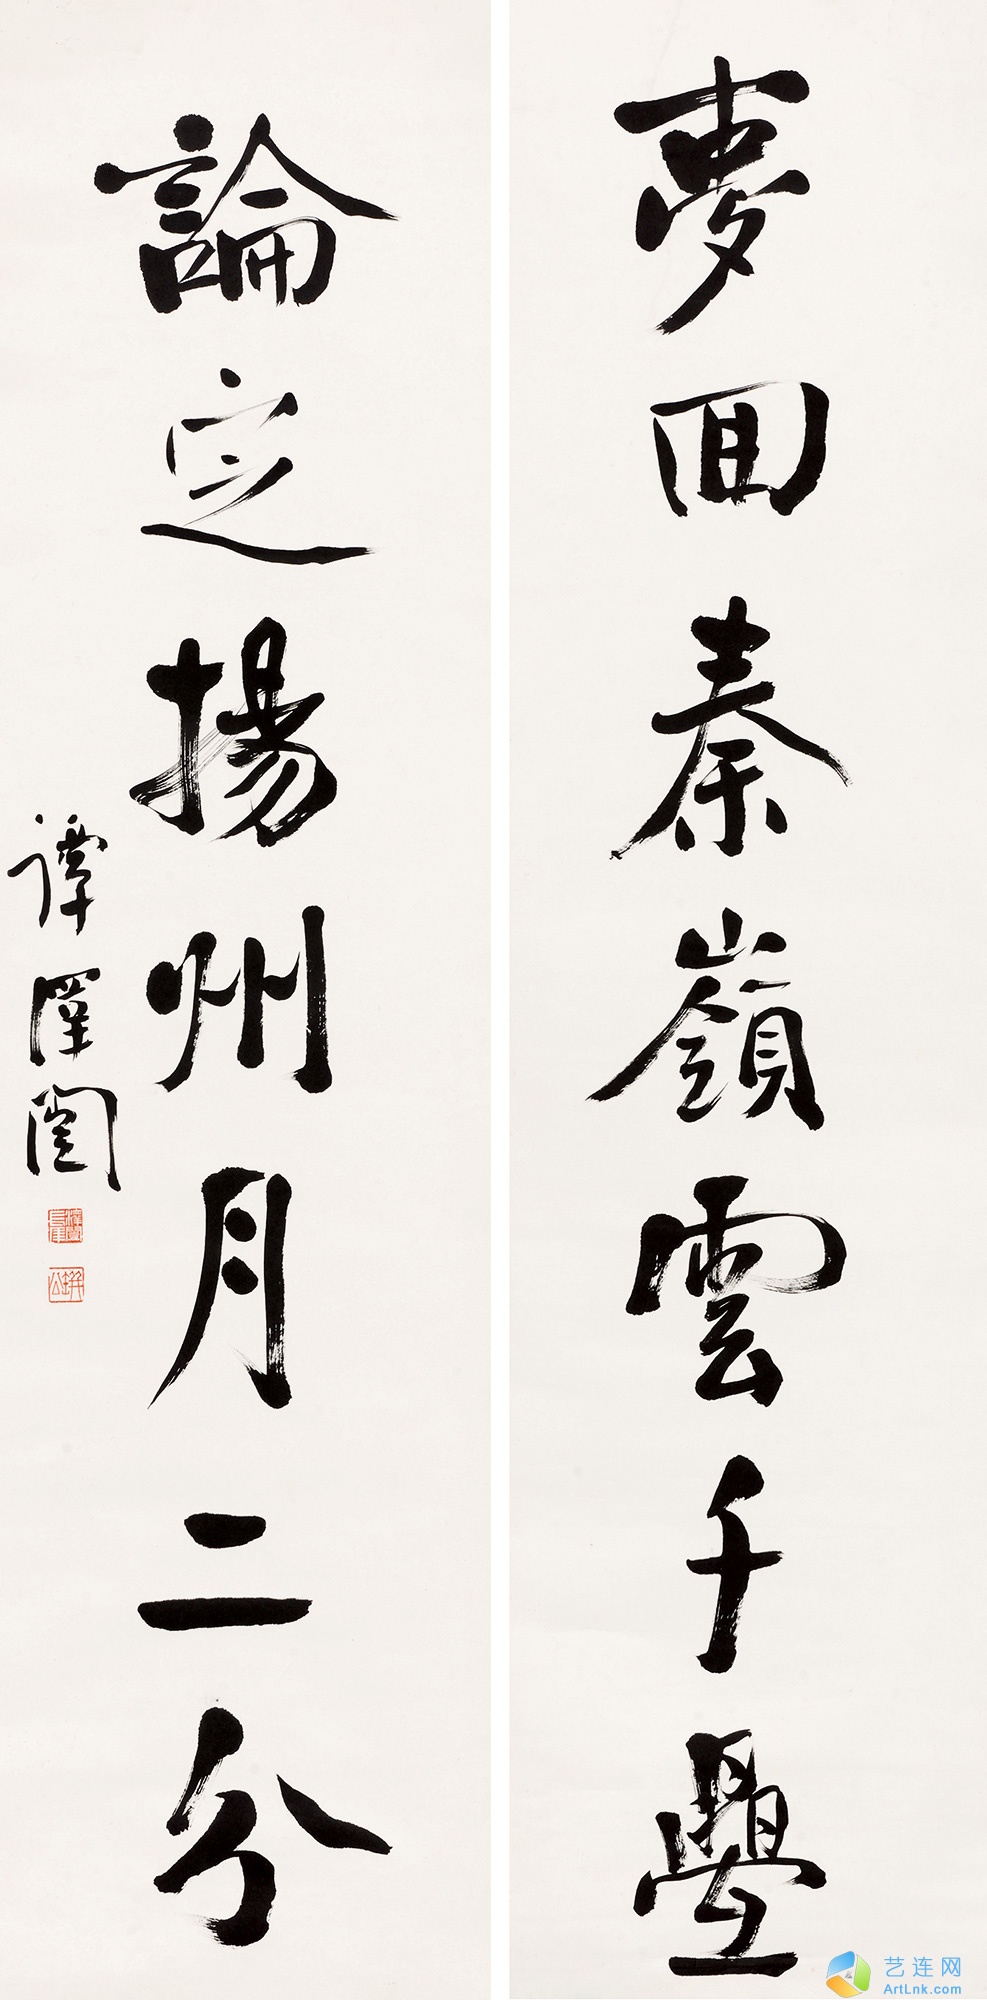 夢回秦嶺雲千疊
論定揚州月二分
譚澤闓
艺连网
ArtLnk.com